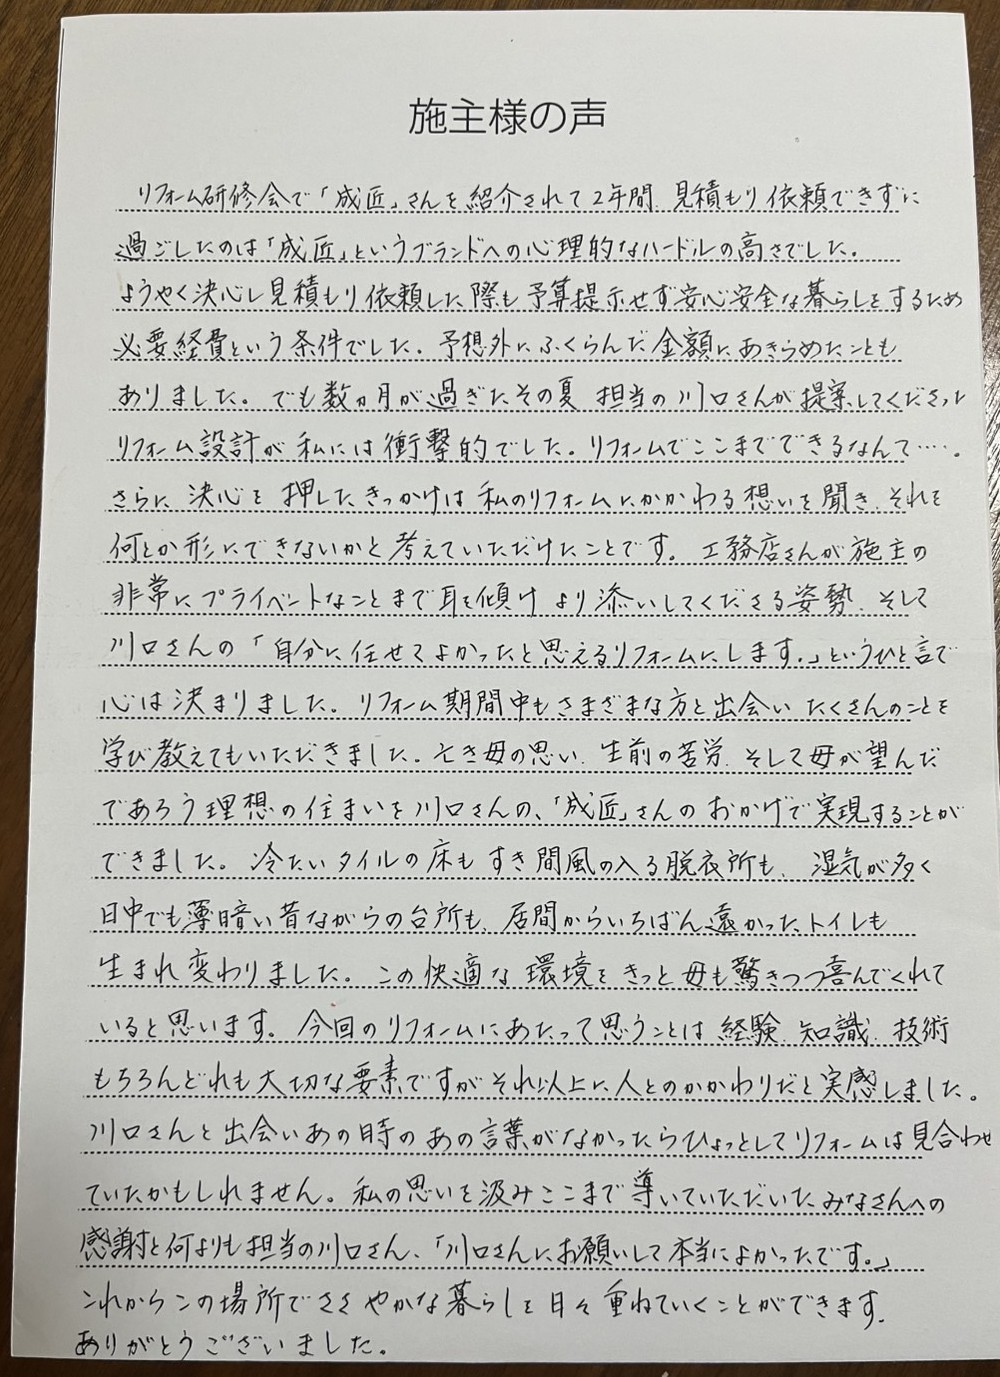 施主様の声
リフォーム研修会で「成匠」さんを紹介されて2年間、見積もり依頼できずに
過ごしたのは「成匠」というブランドへの心理的なハードルの高さでした。
ようやく決心し見積もり依頼した際も予算提示せず安心安全な暮らしをするため
必要経費という条件でした。予想外にふくらんだ金額にあきらめたことも
ありました。でも数ヵ月が過ぎたその夏 担当の川口さんが提案してくださった
リフォーム設計が私には衝撃的でした。リフォームでここまでできるなんて…。
さらに決心を押したきっかけは私のリフォームにかかわる想いを聞き、それを
何とか形にできないかと考えていただけたことです。工務店さんが施主の
非常にプライベントなことまで耳を傾けより添いしてくださる姿勢、そして
川口さんの「自分に任せてよかったと思えるリフォームにします。」というひと言で
心は決まりました。リフォーム期間中もさまざまな方と出会い たくさんのことを
学び教えてもいただきました。亡き母の思い、生前の苦労、そして母が望んだ
であろう理想の住まいを川口さんの、「成匠」さんのおかげで実現することが
できました。冷たいタイルの床も すき間風の入る脱衣所も、湿気が多く
日中でも薄暗い昔ながらの台所も、居間からいちばん遠かったトイレも
生まれ変わりました。この快適な環境をきっと母も驚きつつ喜んでくれて
いると思います。今回のリフォームにあたって思うことは経験、知識、技術
もちろんどれも大切な要素ですがそれ以上に人とのかかわりだと実感しました。
川口さんと出会いあの時のあの言葉がなかったらひょっとしてリフォームは見合わせ
ていたかもしれません。私の思いを汲みここまで導いていただいたみなさんへの
感謝と何よりも担当の川口さん、「川口さんにお願いして本当によかったです。」
これからこの場所でささやかな暮らしを日々重ねていくことができます。
ありがとうございました。